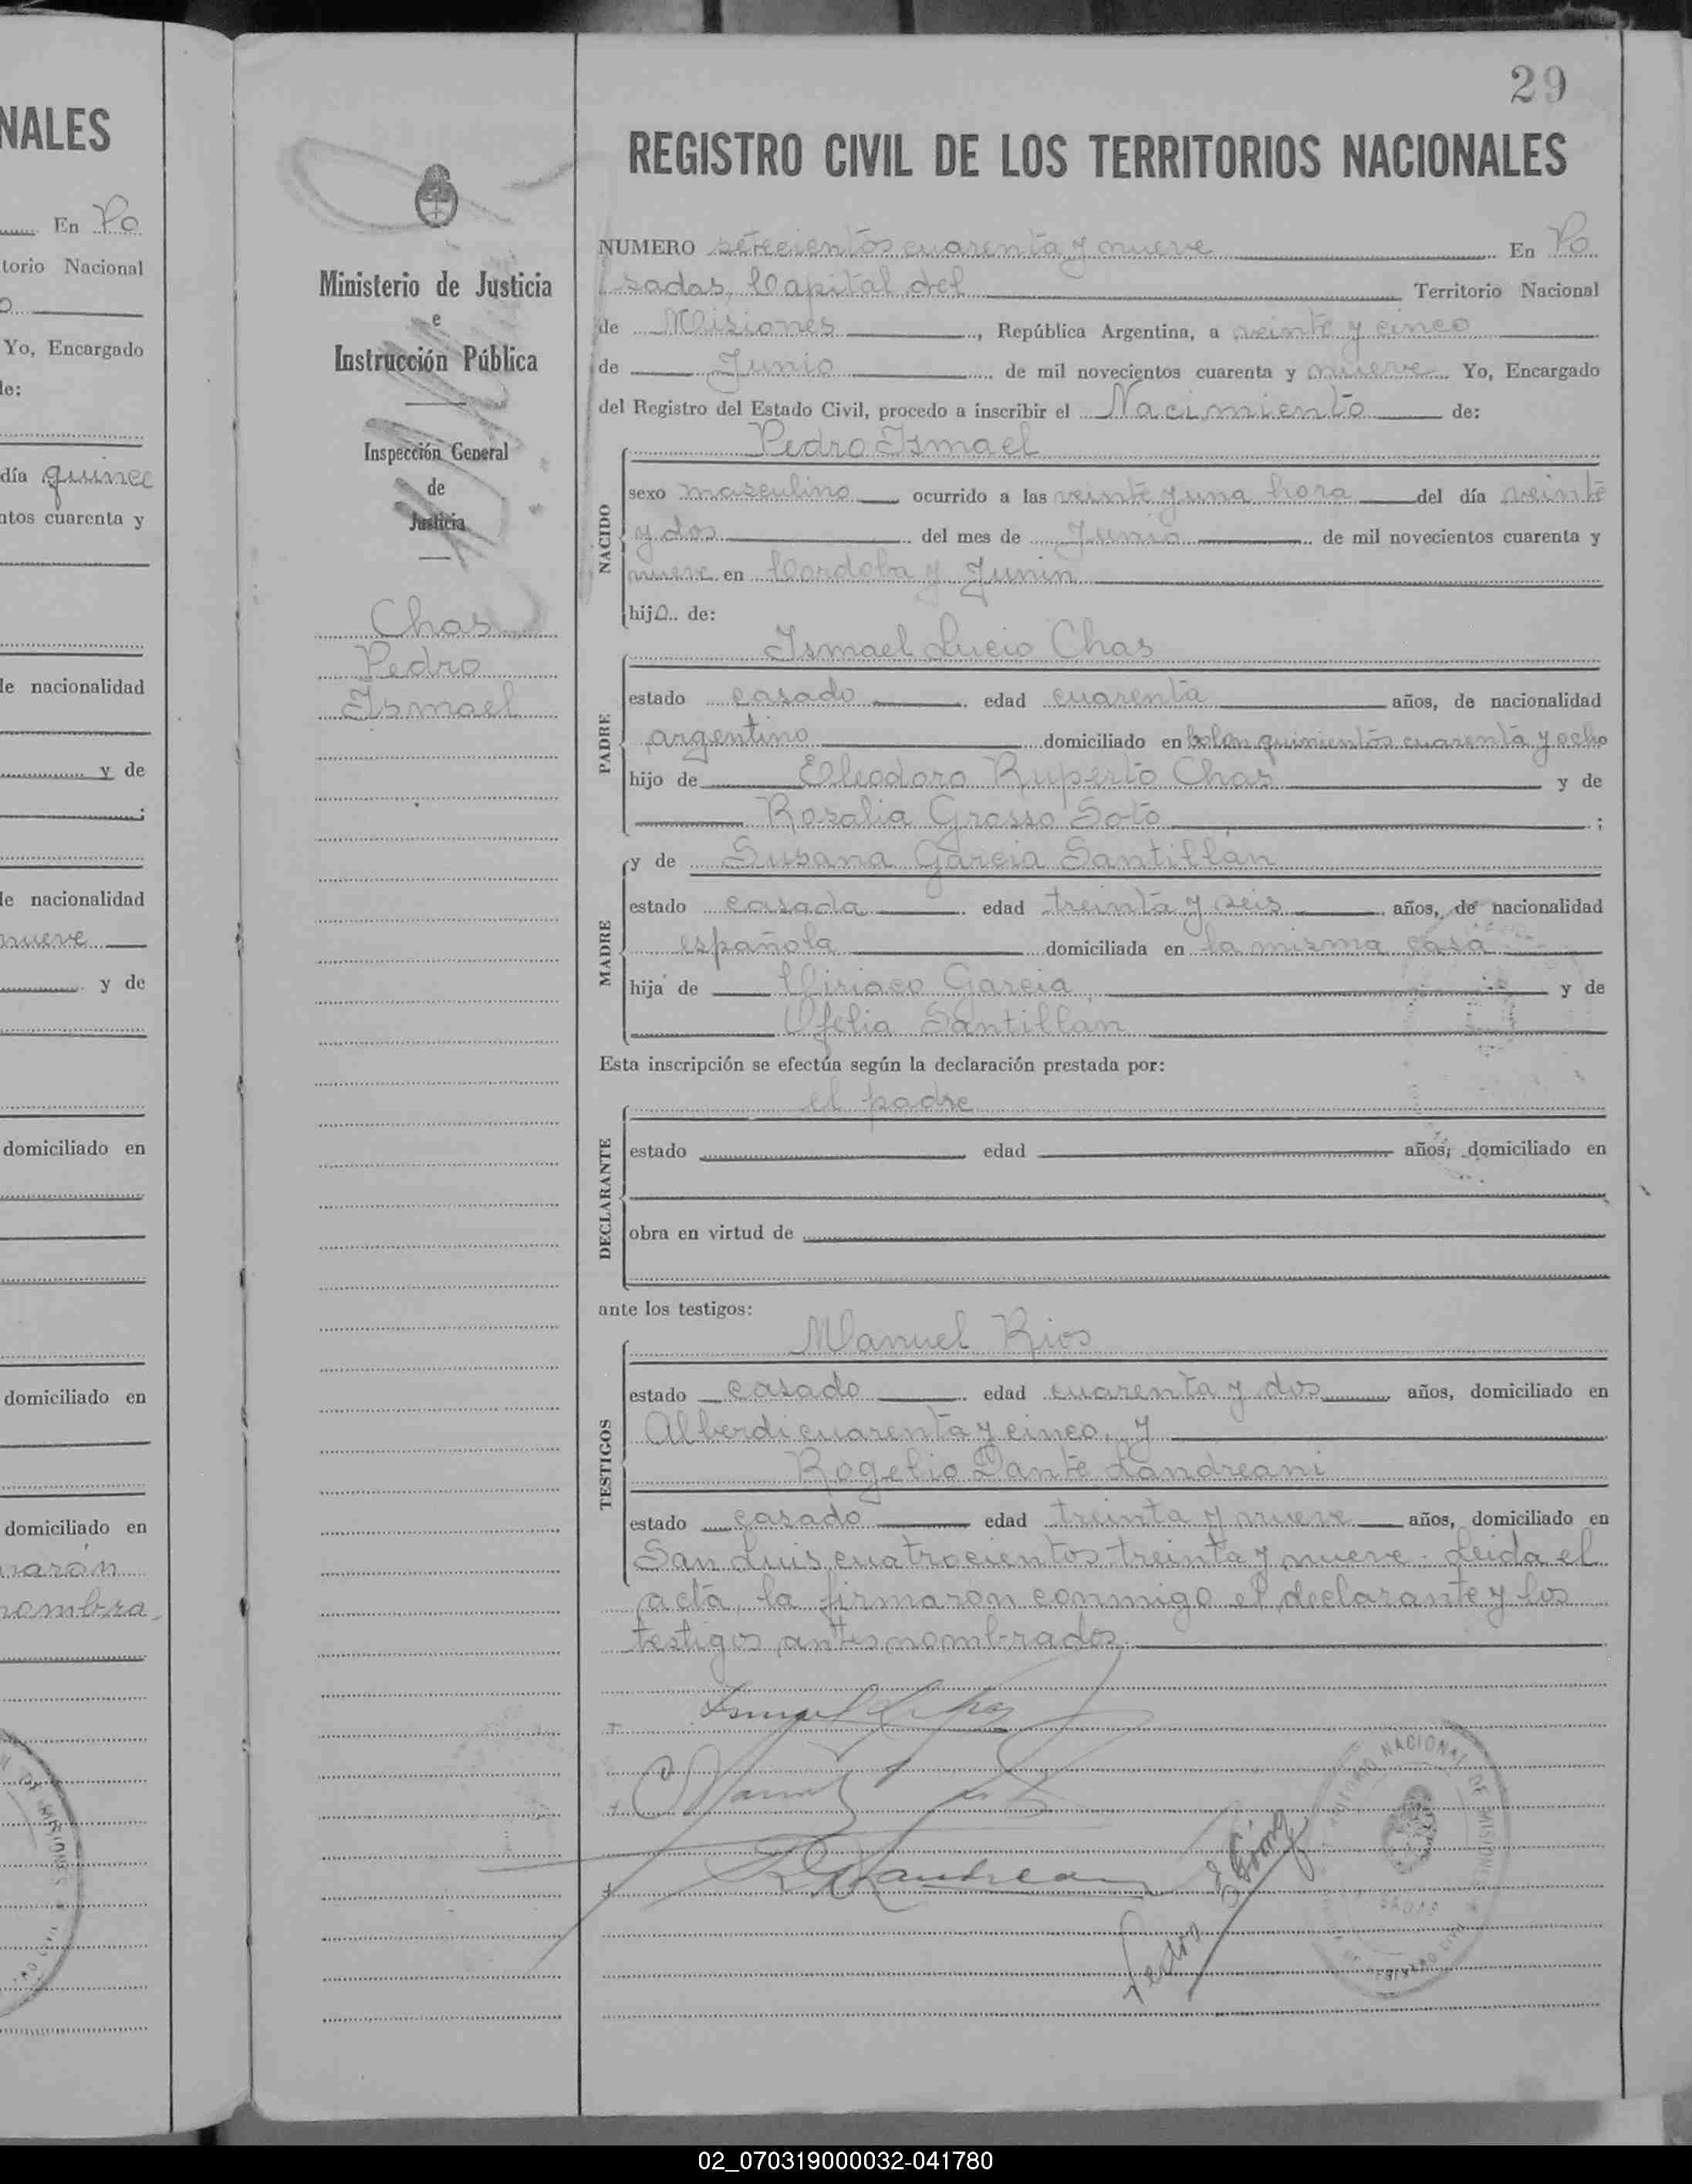 NALES
En Po
torio Nacional
o
Yo, Encargado
de:
día quince
ntos cuarenta y
de nacionalidad
y de
;
de nacionalidad
nueve
y de
domiciliado en
domiciliado en
domiciliado en
maron
nombra
29
Ministerio de Justicia
e
Instrucción Pública
Inspección General
de
Justicia
Chas
Pedro
Ismael
REGISTRO CIVIL DE LOS TERRITORIOS NACIONALES
NUMERO setecientos cuarenta y nueve En Po
sadas, Capital del Territorio Nacional
de Misiones, República Argentina, a veinte y cinco
de Junio de mil novecientos cuarenta y nueve Yo, Encargado
del Registro del Estado Civil, procedo a inscribir el Nacimiento de:
NACIDO
Pedro Ismael
sexo masculino ocurrido a las veinte y una hora del día veinte
y dos del mes de Junio de mil novecientos cuarenta y
nueve en Cordoba y Junin
hijo de:
PADRE
Ismael Lucio Chas
estado casado edad cuarenta años, de nacionalidad
argentino domiciliado en Colon quinientos cuarenta y ocho
hijo de Eleodoro Ruperto Chas y de
Rosalia Grasso Soto ;
MADRE
y de Susana Garcia Santillán
estado casada edad treinta y seis años, de nacionalidad
española domiciliada en la misma casa
hija de Ciriaco Garcia y de
Ofelia Santillan
Esta inscripción se efectúa según la declaración prestada por:
DECLARANTE
el padre
estado edad años, domiciliado en
obra en virtud de
ante los testigos:
TESTIGOS
Manuel Rios
estado casado edad cuarenta y dos años, domiciliado en
Alberdi cuarenta y cinco, y
Rogelio Dante Landreani
estado casado edad treinta y nueve años, domiciliado en
San Luis cuatrocientos treinta y nueve. Leida el
acta, la firmaron conmigo el declarante y los
testigos antes nombrados.
Ismael L Chas
Manuel
R D Landreani
Pedro
NACIONAL DE MISIONES
02_070319000032-041780